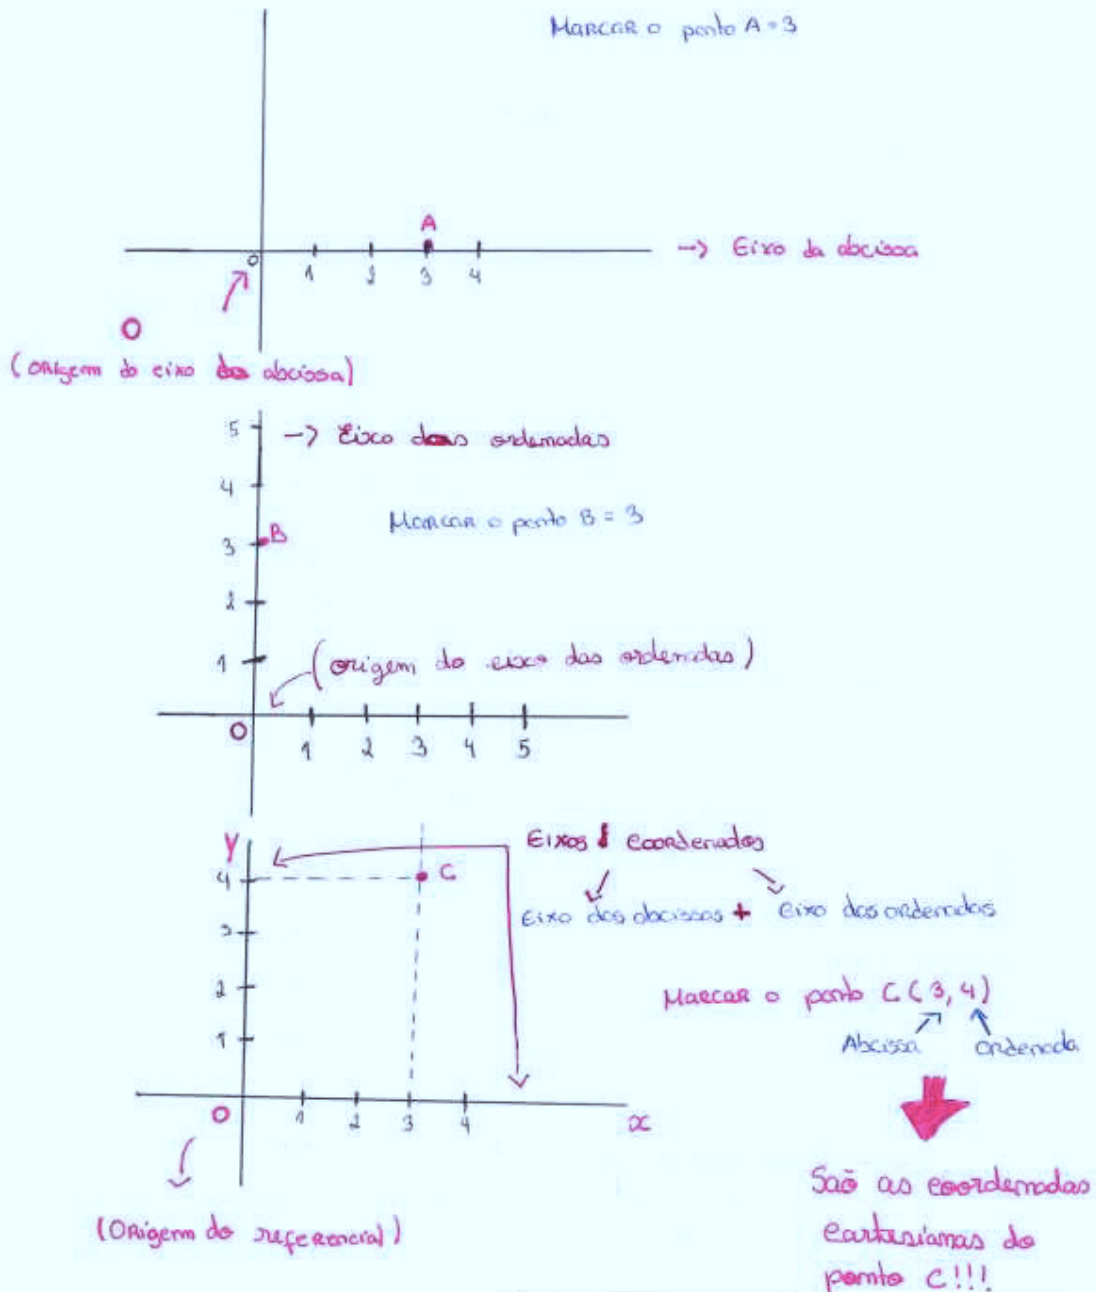 Marcar o ponto A = 3
A
0 1 2 3 4
-> Eixo da abcissa
O
(origem do eixo da abcissa)
5 -> Eixo das ordenadas
4
Marcar o ponto B = 3
3 B
2
1 (origem do eixo das ordenadas)
O 1 2 3 4 5
Y
Eixos coordenados
4 C
Eixo das abcissas + Eixo das ordenadas
3
2
Marcar o ponto C (3, 4)
1
Abcissa Ordenada
O 1 2 3 4 x
(Origem do referencial)
Saõ as coordenadas
cartesianas do
ponto C!!!